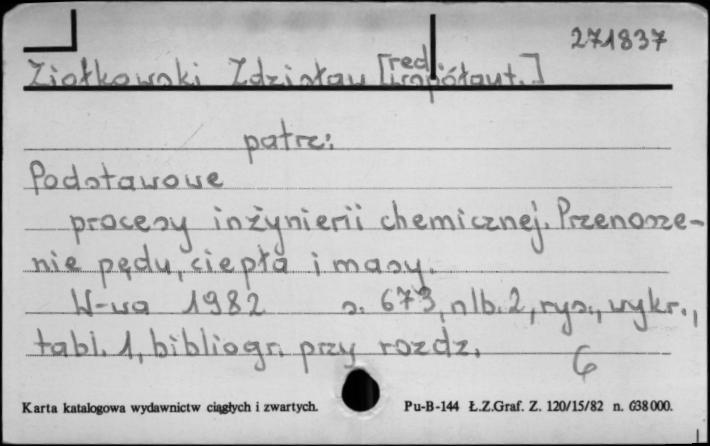 271837
Ziołkowski Zdzisław [red. i współaut.]
patrz:
Podstawowe
procesy inżynierii chemicznej. Przenosze-
nie pędu, ciepła i masy.
W-wa 1982 s. 673, nlb. 2, rys., wykr.,
tabl. 1, bibliogr. przy rozdz.
6
Karta katalogowa wydawnictw ciągłych i zwartych. Pu-B-144 Ł.Z.Graf. Z. 120/15/82 n. 638000.